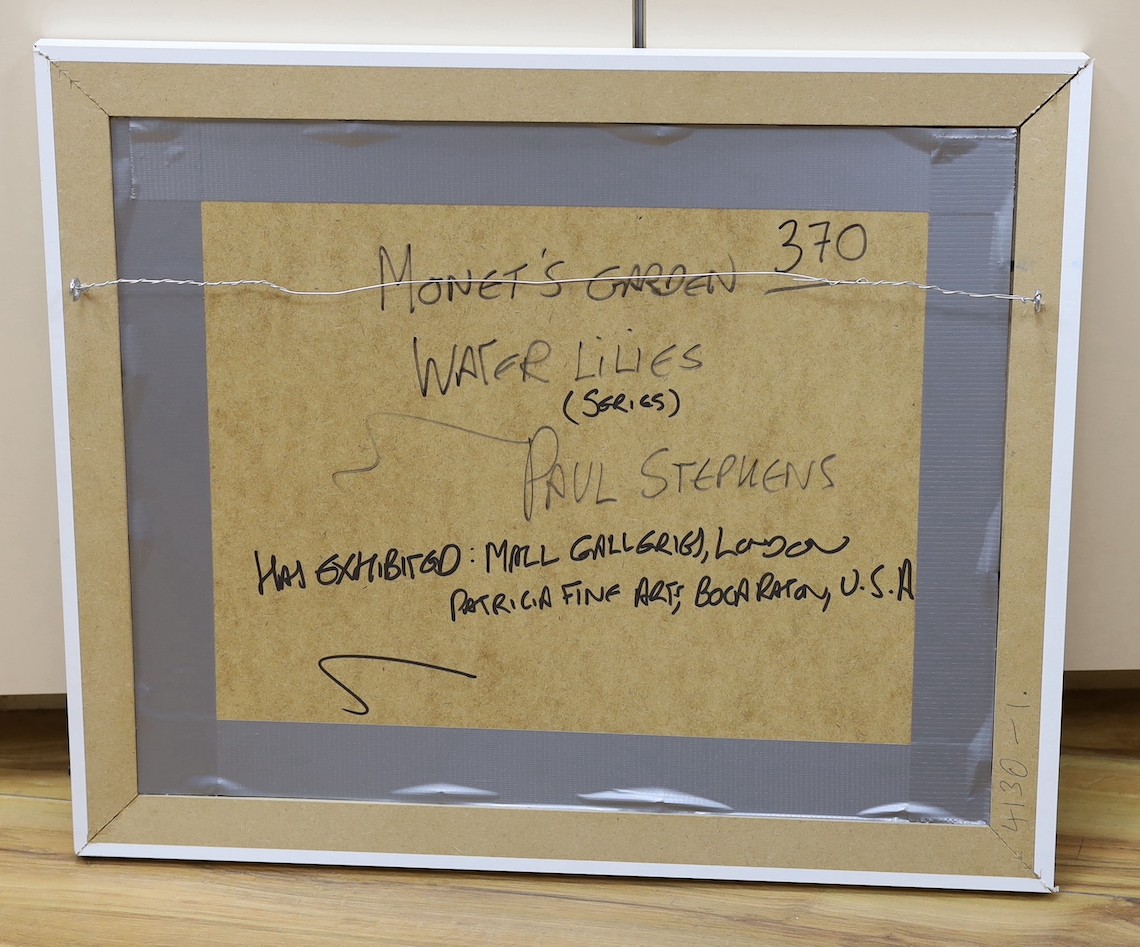 370
MONET'S GARDEN
WATER LILIES
(SERIES)
PAUL STEPHENS
HAS EXHIBITED: MALL GALLERIES, LONDON
PATRICIA FINE ARTS, BOCA RATON, U.S.A
4130-1.